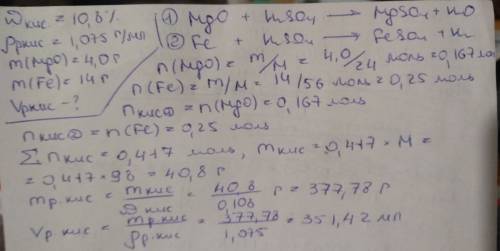 ω кис = 10,8 %
ρр кис = 1,075 г/мл
m(MgO) = 4,0 г
m(Fe) = 14 г
Vр кис - ?
① MgO + H₂SO₄ → MgSO₄ + H₂O
② Fe + H₂SO₄ → FeSO₄ + H₂
n(MgO) = m/M = 4,0/24 моль = 0,167 моль
n(Fe) = m/M = 14/56 моль = 0,25 моль
n кис① = n(MgO) = 0,167 моль
n кис② = n(Fe) = 0,25 моль
∑ n кис = 0,417 моль, m кис = 0,417 × M =
= 0,417 × 98 = 40,8 г
mр. кис = m кис/ω кис = 40,8/0,108 г = 377,78 г
Vр. кис = mр. кис/ρр. кис = 377,78/1,075 = 351,42 мл